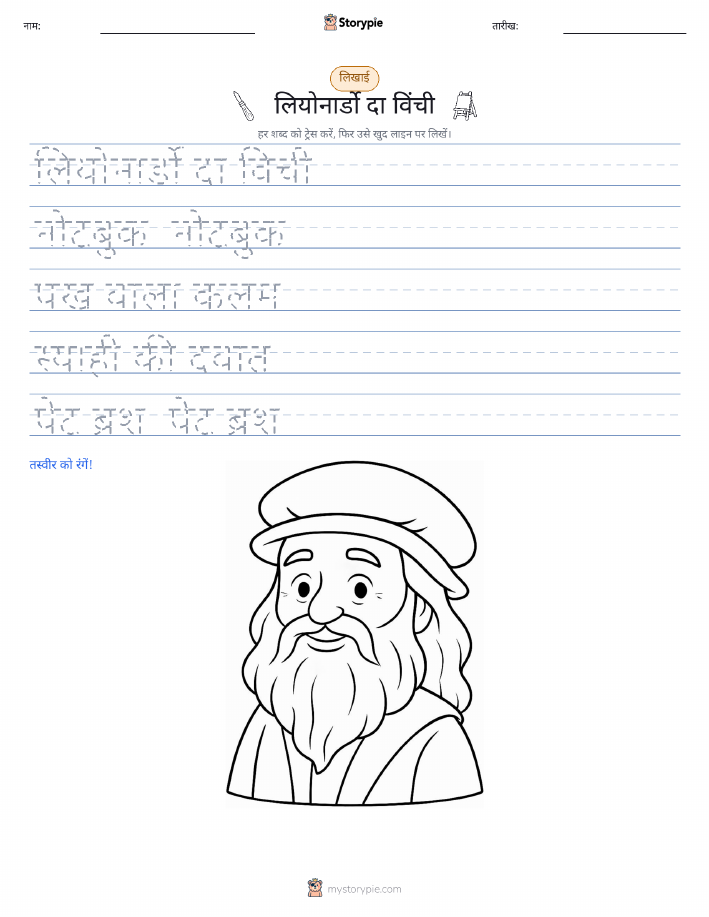 नाम:
Storypie
तारीख:
लिखाई
लियोनार्डो दा विंची
हर शब्द को ट्रेस करें, फिर उसे खुद लाइन पर लिखें।
लियोनार्डो दा विंची
नोटबुक नोटबुक
पंख वाला कलम
स्याही की दवात
पेंट ब्रश पेंट ब्रश
तस्वीर को रंगें!
mystorypie.com